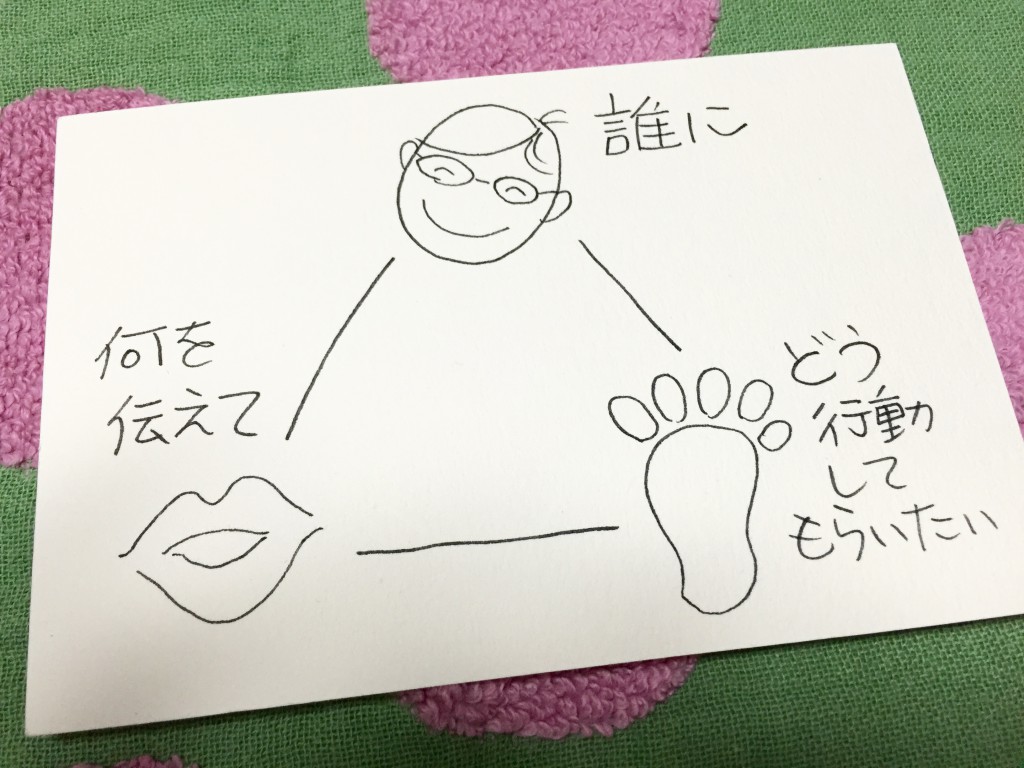 誰に
何を
伝えて
どう
行動
して
もらいたい